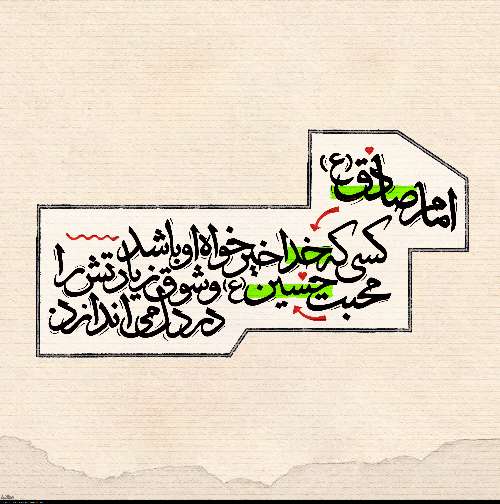 امام صادق (ع)
کسی که خدا خیرخواه او باشد
محبت حسین (ع) و شوق زیارتش را
در دل می اندازد